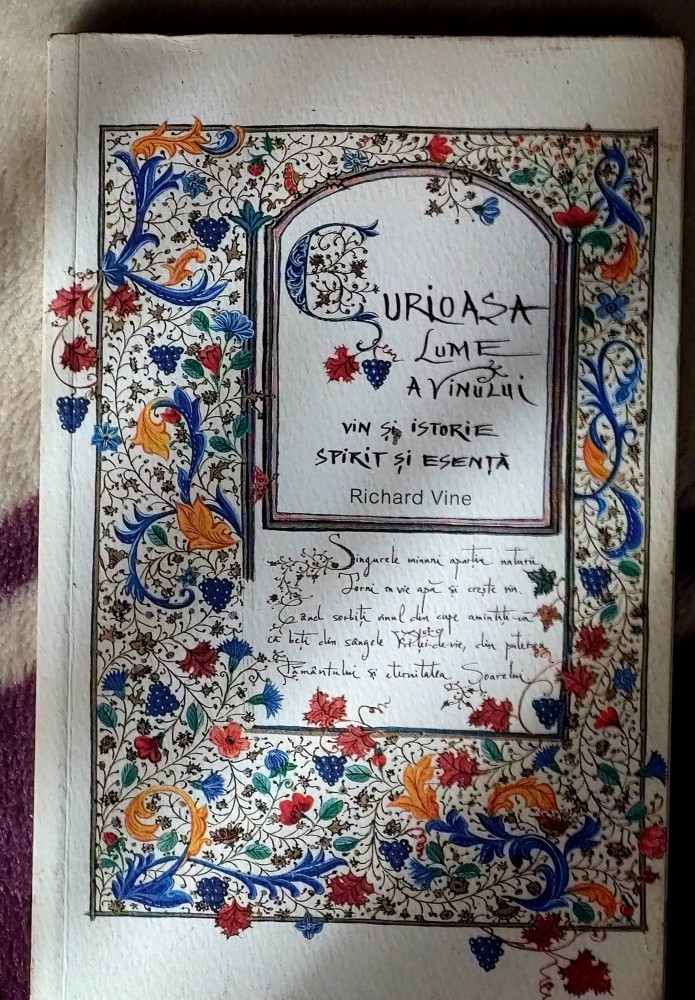 CURIOASA
LUME
A VINULUI
VIN ȘI ISTORIE
SPIRIT ȘI ESENȚĂ
Richard Vine
Singurele minuni aparțin naturii
Torni în vie apă și crește vin.
Când sorbiți vinul din cupe amintiți-vă
că beți din sângele Viței-de-vie, din puterea
Pământului și eternitatea Soarelui